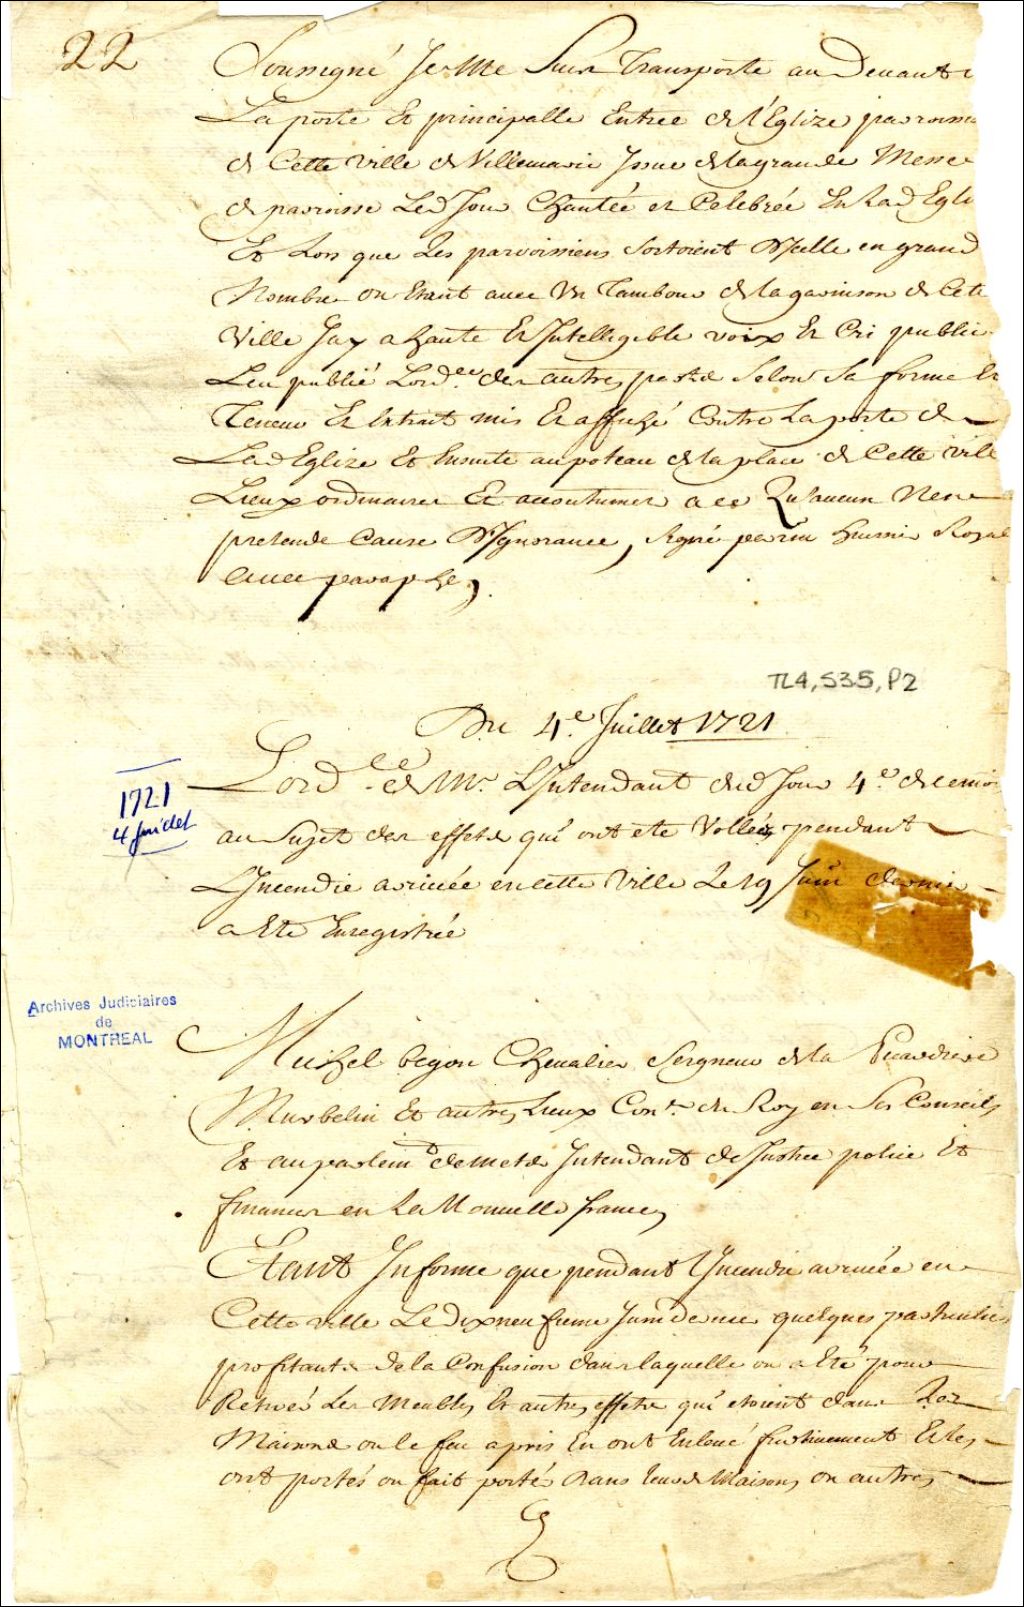 22
Soussigné Je Me Suis Transporté au Devant de
La porte Et principalle Entrée de l'Eglize parroissi
de Cette Ville de Villemarie Issue de la grande Messe
de parroisse Led Jour Chantée et Celebrée En Lad Egli
Et Lors que Les parroissiens Sortoient d'Icelle en grand
Nombre Etant avec Un Tambour de la garnison de Cette
Ville Jay a haute Et Intelligible voix Et Cri public
Leu publié Lord.ce des autres parts Selon Sa forme Et
Teneur Et Extrait mis Et affiché Contre La porte de
Lad Eglize Et Ensuite au poteau de la place de Cette vill
Lieux ordinaires Et accoutumez a ce Qu'aucun Nen
pretende Cause d'Ignorance, Signé perrin huissier Royal
avec paraphe,
TL4, S35, P2
Du 4.e Juillet 1721
Lord.ce de Mr. L'Intendant dud Jour 4.e de ce mois
1721
4 Juillet
au Sujet des effets qui ont eté Vollés pendant
L'Incendie arrivée en cette Ville Le 19 Juin dernier
a Eté Enregistrée
Archives Judiciaires
de
MONTREAL
Michel begon Chevalier Seigneur de la Picardiere
Murbelin Et autres Lieux Con.er du Roy en Ses Conseils
Et au parlemt de Metz Intendant de Justice police Et
finances en La Nouvelle france,
Etant Informé que pendant l'Incendie arrivée en
Cette ville Le dixneufieme Juin dernier quelques particuliers
profitants de la Confusion dans laquelle on a Eté pour
Retirer Les Meubles Et autres effets qui etoient dans Les
Maisons ou le feu a pris En ont Enlevé furtivement Et les
ont portés ou fait porter dans leurs Maisons ou autres